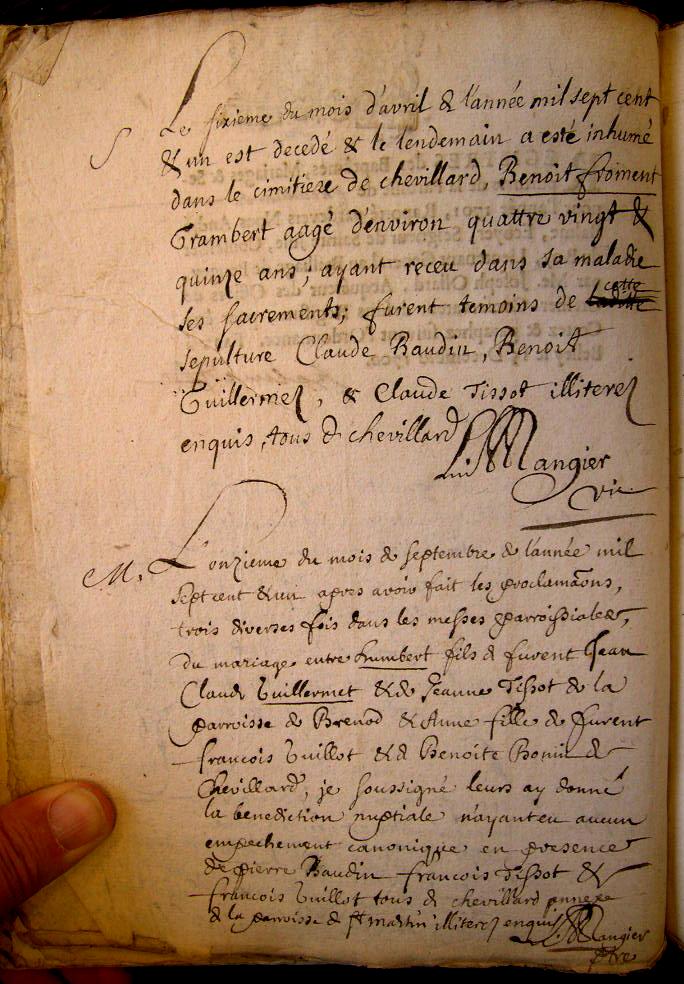 S
Le sixieme du mois d'avril & l'année mil sept cent
& un est decedé & le lendemain a esté inhumé
dans le cimitiere de chevillard, Benoit froiment
Grambert aagé d'environ quattre vingt &
quinze ans; ayant receu dans sa maladie
ses sacrements; furent temoins de cette
sepulture Claude Baudin, Benoit
Guillermez, & Claude Tissot illiterez
enquis, tous d chevillard
Mangier
vic
M. L'onzieme du mois d septembre d l'année mil
sept cent & un apres avoir fait les proclamaons,
trois diverses fois dans les messes parroissiales,
du mariage entre humbert fils d furent Jean
Claude Guillermet & d Jeanne Tissot de la
parroisse de Brenod & Anne fille de furent
francois Guillot & d Benoite Bonin d
Chevillard, je soussigné leurs ay donné
la benediction nuptiale n'ayant eu aucun
empechement canonique en presence
de pierre Baudin francois Tissot &
francois Guillot tous d chevillard annexe
d la parroisse d st martin illiterez enquis
Mangier
ptre